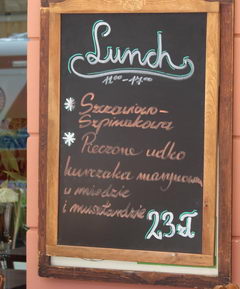 Lunch
12.00-17.00
* Szczawiowo-
Szpinakowa
* Pieczone udko
kurczaka marynow.
w miodzie
i musztardzie 23zł